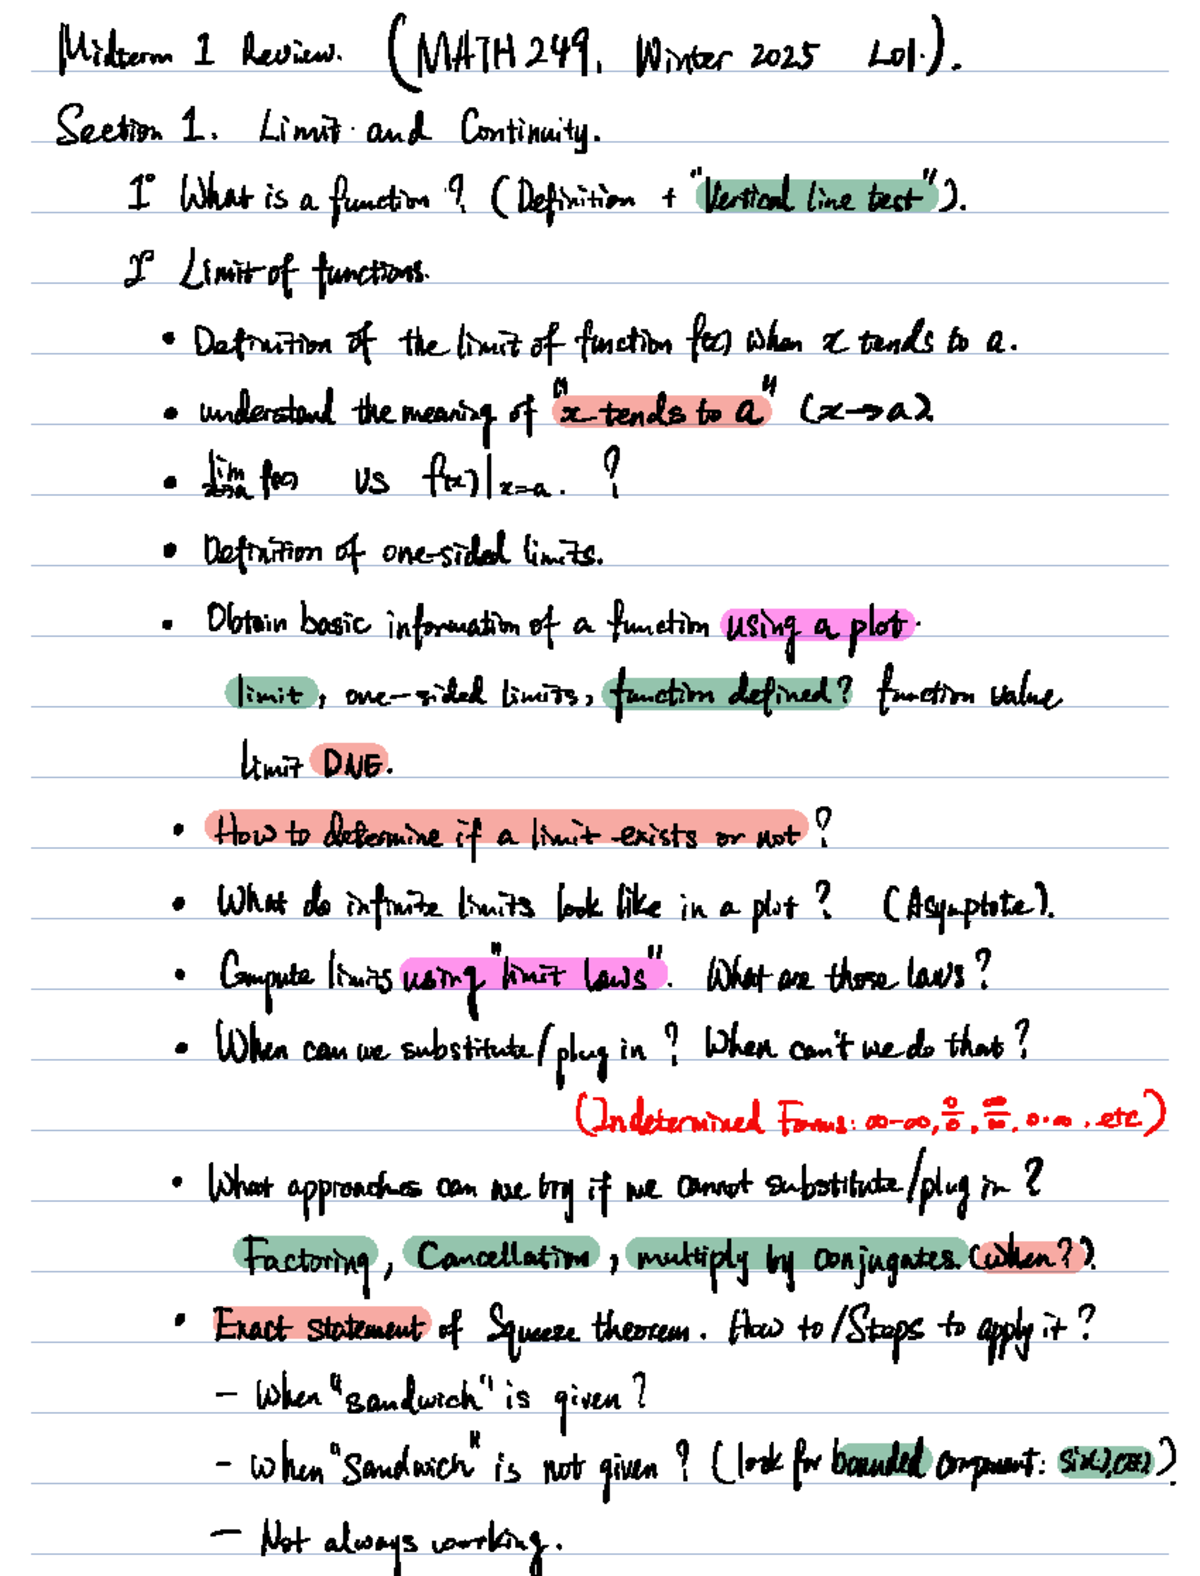 Midterm 1 Review. (MATH 249, Winter 2025 L01.).
Section 1. Limit and Continuity.
1° What is a function? (Definition + "Vertical line test").
2° Limit of functions.
• Definition of the limit of function f(x) when x tends to a.
• understand the meaning of "x tends to a" (x→a).
• lim x→a f(x) vs f(x)|x=a. ?
• Definition of one-sided limits.
• Obtain basic information of a function using a plot.
limit, one-sided limits, function defined? function value
limit DNE.
• How to determine if a limit exists or not?
• What do infinite limits look like in a plot? (Asymptote).
• Compute limits using "limit laws". What are those laws?
• When can we substitute/plug in? When can't we do that?
(Indetermined Forms: ∞-∞, 0/0, ∞/∞, 0·∞, etc)
• What approaches can we try if we cannot substitute/plug in?
Factoring, Cancellation, multiply by conjugates. (when?).
• Exact statement of Squeeze theorem. How to/Steps to apply it?
- When "sandwich" is given?
- When "Sandwich" is not given? (look for bounded component: sin(·), cos(·))
- Not always working.